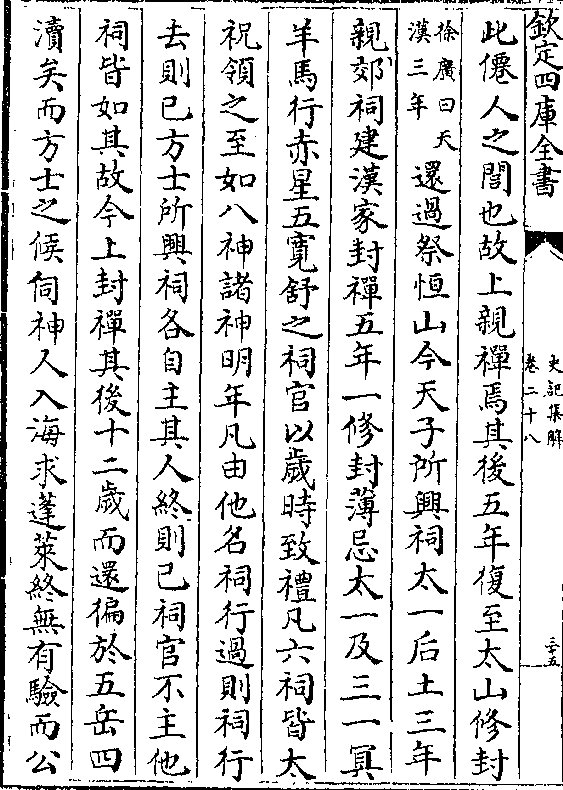 欽定四庫全書
史記集解
卷二十八
三十五
此僊人之閭也故上親禪焉其後五年復至太山修封
徐廣曰天漢三年還過祭恒山今天子所興祠太一后土三年
親郊祠建漢家封禪五年一修封薄忌太一及三一冥
羊馬行赤星五寬舒之祠官以歲時致禮凡六祠皆太
祝領之至如八神諸神明年凡由他名祠行過則祠行
去則已方士所興祠各自主其人終則已祠官不主他
祠皆如其故今上封禪其後十二歲而還徧於五岳四
瀆矣而方士之候伺神人入海求蓬萊終無有驗而公